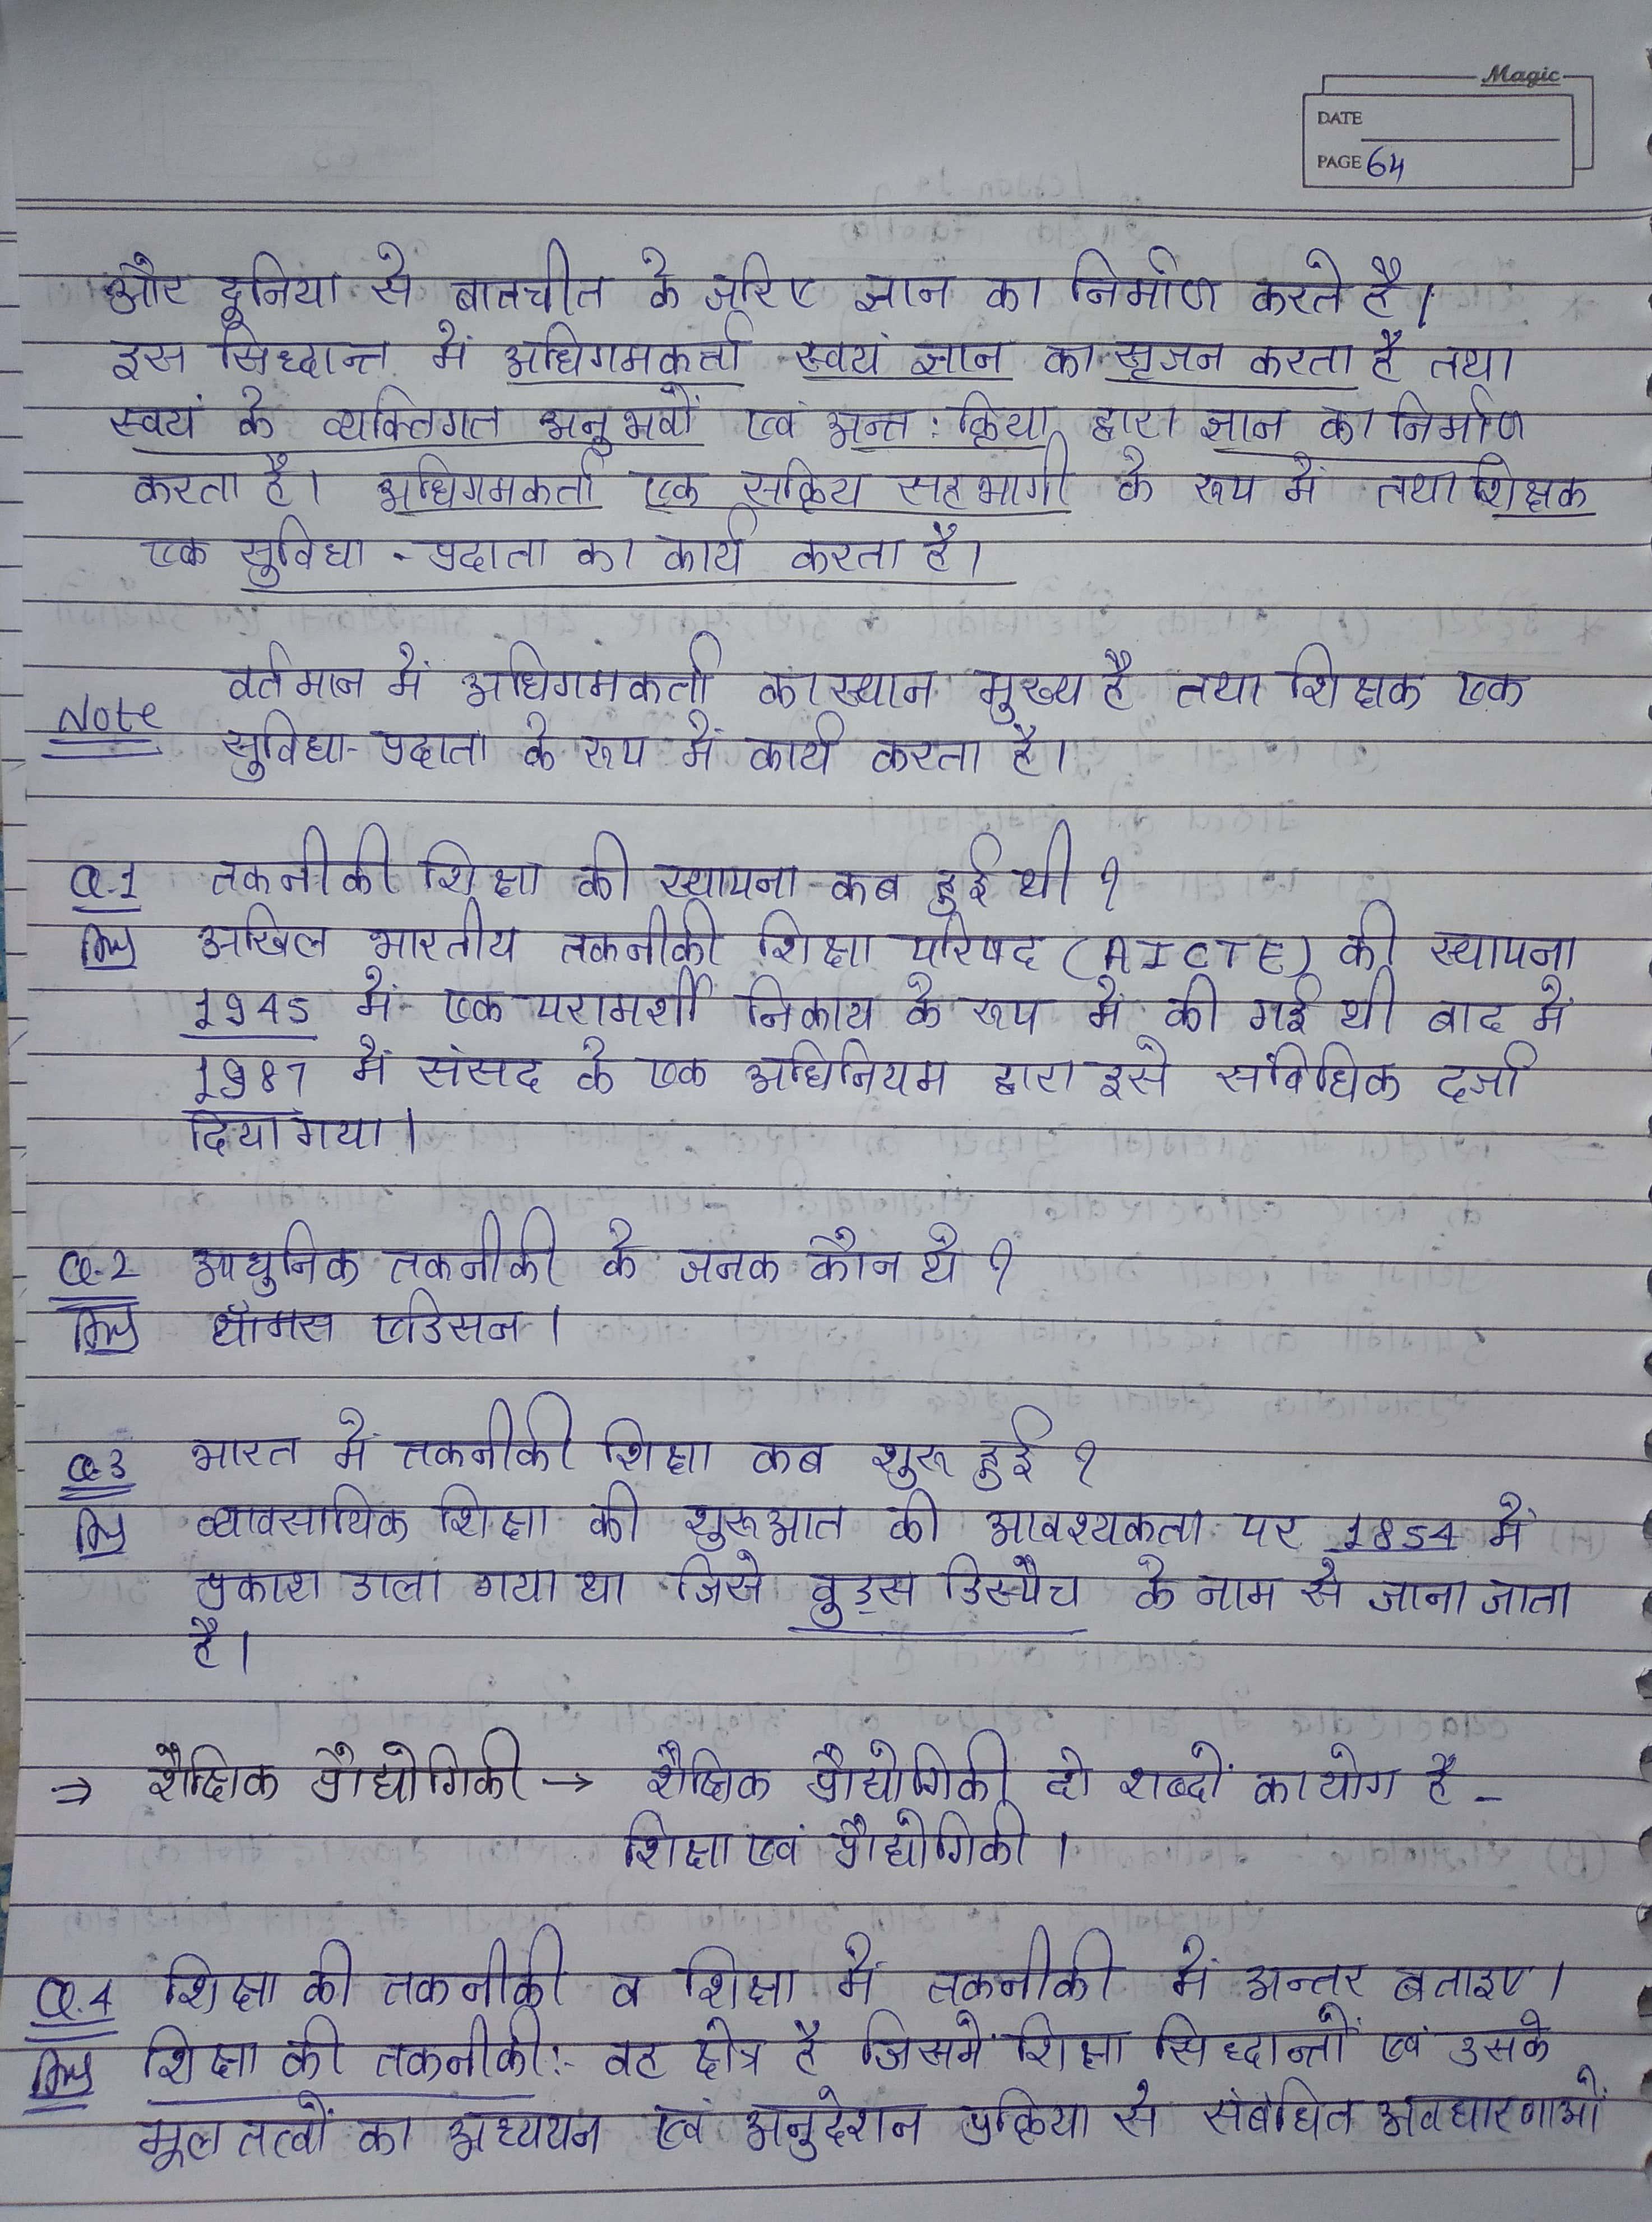 Magic
DATE
PAGE 64
और दूनिया से बातचीत के जरिए ज्ञान का निर्माण करते है।
इस सिध्दान्त में अधिगमकर्ता स्वयं ज्ञान का सृजन करता है तथा
स्वयं के व्यक्तिगत अनुभवों एवं अन्त: क्रिया द्वारा ज्ञान का निर्माण
करता है। अधिगमकर्ता एक सक्रिय सहभागी के रूप में तथा शिक्षक
एक सुविधा - प्रदाता का कार्य करता है।
वर्तमान में अधिगमकर्ता का स्थान मुख्य है तथा शिक्षक एक
Note सुविधा-प्रदाता के रूप में कार्य करता है।
Q.1 तकनीकी शिक्षा की स्थापना कब हुई थी ?
Ans अखिल भारतीय तकनीकी शिक्षा परिषद (AICTE) की स्थापना
1945 में एक परामर्शी निकाय के रूप में की गई थी बाद में
1987 में संसद के एक अधिनियम द्वारा इसे संविधिक दर्जा
दिया गया।
Q.2 आधुनिक तकनीकी के जनक कौन थे ?
Ans थॉमस एडिसन।
Q.3 भारत में तकनीकी शिक्षा कब शुरू हुई ?
Ans व्यावसायिक शिक्षा की शुरूआत की आवश्यकता पर 1854 में
प्रकाश डाला गया था जिसे वुड्स डिस्पैच के नाम से जाना जाता
है।
⇒ शैक्षिक प्रौद्योगिकी → शैक्षिक प्रौद्योगिकी दो शब्दों का योग है -
शिक्षा एवं प्रौद्योगिकी ।
Q.4 शिक्षा की तकनीकी व शिक्षा में तकनीकी में अन्तर बताइए।
Ans शिक्षा की तकनीकी:- वह क्षेत्र है जिसमें शिक्षा सिध्दान्तों एवं उसके
मूल तत्वों का अध्ययन एवं अनुदेशन प्रक्रिया से संबंधित अवधारणाओं